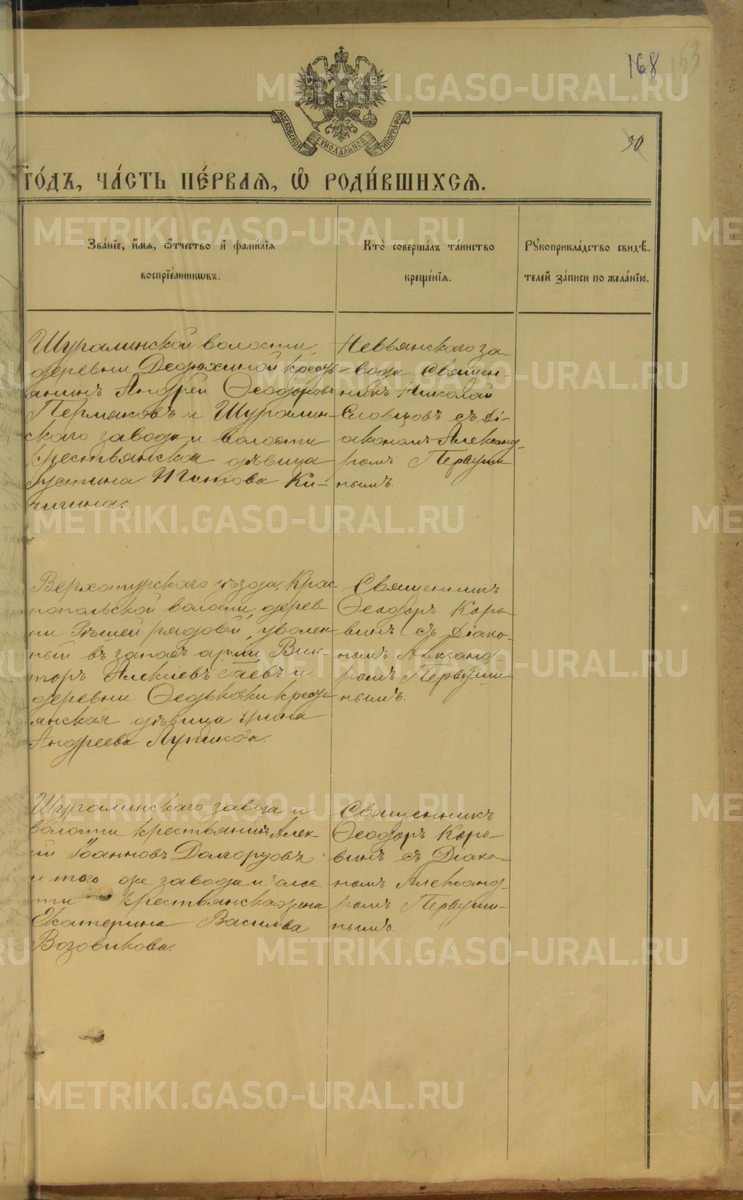 168 153
МОСКОВСКОЙ СѴНОДАЛЬНОЙ ТИПОГРАФІИ
50
ГО́ДЪ, ЧА́СТЬ ПЕ́РВАЯ, Ѡ҆ РОДИ́ВШИХСЯ.
Зва́нїе, и҆́мѧ, ѻ҆́тчество и҆ фами́лїѧ
воспрїе́мникѡвъ.
Кто̀ соверша́лъ та́инство
креще́нїѧ.
Рꙋкоприкла́дство свидѣ́-
телей за́писи по жела́нїю.
Шуралинской волости,
деревни Дедюхиной кресть-
янинъ Андрей Ѳеодоровъ
Пермяковъ и Шуралин-
скаго завода и волости
крестьянская дѣвица
Іустина Титова Ки-
чигина.
Невьянскаго за-
вода Священ-
никъ Николай
Словцовъ съ Ді-
акономъ Александ-
ромъ Первуши-
нымъ.
Верхотурскаго уѣзда, Крас-
нопольской волости, дерев-
ни рядовой, уволен-
ный въ запасъ арміи Вик-
торъ Алексѣевъ Гаевъ и
деревни Ѳедьковки кресть-
янская дѣвица Ирина
Андреева Лупикова.
Священникъ
Ѳеодоръ Коро-
винъ съ Діако-
номъ Александ-
ромъ Первуши-
нымъ.
Шуралинскаго завода и
волости крестьянинъ Алек-
сій Іоанновъ Долгоруковъ
и того же завода и волос-
ти крестьянская жена
Екатерина Васильева
Возовикова.
Священникъ
Ѳеодоръ Коро-
винъ съ Діако-
номъ Александ-
ромъ Первуши-
нымъ.
METRIKI.GASO-URAL.RU